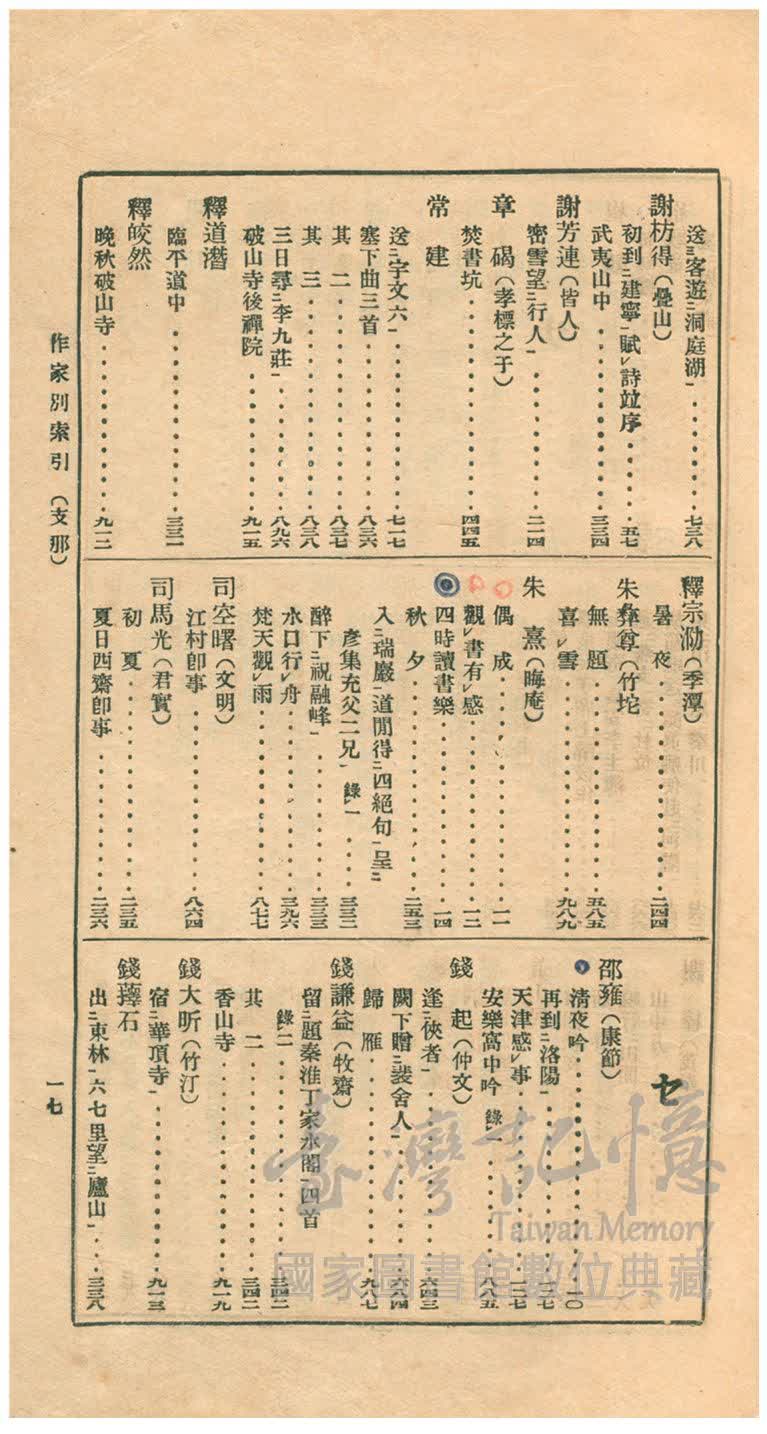 送㆔客遊㆓洞庭湖㆒‥‥‥七三八
謝枋得（疊山）
初到㆓建寧㆒賦㆑詩竝序‥‥‥五七
武夷山中‥‥‥三三四
謝芳連（皆人）
密雪望㆓行人㆒‥‥‥二一四
章　碣（孝標之子）
焚書坑‥‥‥四四五
常　建
送㆓宇文六㆒‥‥‥七一七
塞下曲三首‥‥‥八三六
其　二‥‥‥八三七
其　三‥‥‥八三八
三日尋㆓李九莊㆒‥‥‥八九六
破山寺後禪院‥‥‥九一五
釋道潛
臨平道中‥‥‥三三一
釋皎然
晚秋破山寺‥‥‥九一二
釋宗泐（季潭）
暑　夜‥‥‥二四四
朱彝尊（竹坨
無　題‥‥‥五八五
喜㆑雪‥‥‥九八九
朱　熹（晦庵）
偶　成‥‥‥一一
觀㆑書有㆑感‥‥‥一二
四時讀書樂‥‥‥一四
秋　夕‥‥‥二五三
入㆓瑞巖㆒道間得㆓四絕句㆒呈㆓
彥集充父二兄　錄㆑一‥‥‥三三二
醉下㆓祝融峰㆒‥‥‥三三三
水口行㆑舟‥‥‥三九六
梵天觀㆑雨‥‥‥八七七
司空曙（文明）
江村卽事‥‥‥八六四
司馬光（君實）
初　夏‥‥‥二三五
夏日西齋卽事‥‥‥二三六
セ
邵雍（康節）
清夜吟‥‥‥一〇
再到㆓洛陽㆒‥‥‥一二七
天津感㆑事‥‥‥一二七
安樂窩中吟　錄㆑一‥‥‥八八五
錢　起（仲文）
逢㆓俠者㆒‥‥‥六四三
闕下贈㆓裴舍人㆒‥‥‥六八四
歸　雁‥‥‥九八七
錢謙益（牧齋）
留㆓題秦淮丁家水閣㆒四首
錄㆑二‥‥‥三四二
其　二‥‥‥三四二
香山寺‥‥‥九一九
錢大昕（竹汀）
宿㆓華頂寺㆒‥‥‥九一三
錢蘀石
出㆓東林㆒六七里望㆓廬山㆒‥‥‥三三八
作家別索引（支那）
一七
臺灣記憶
Taiwan Memory
國家圖書館數位典藏